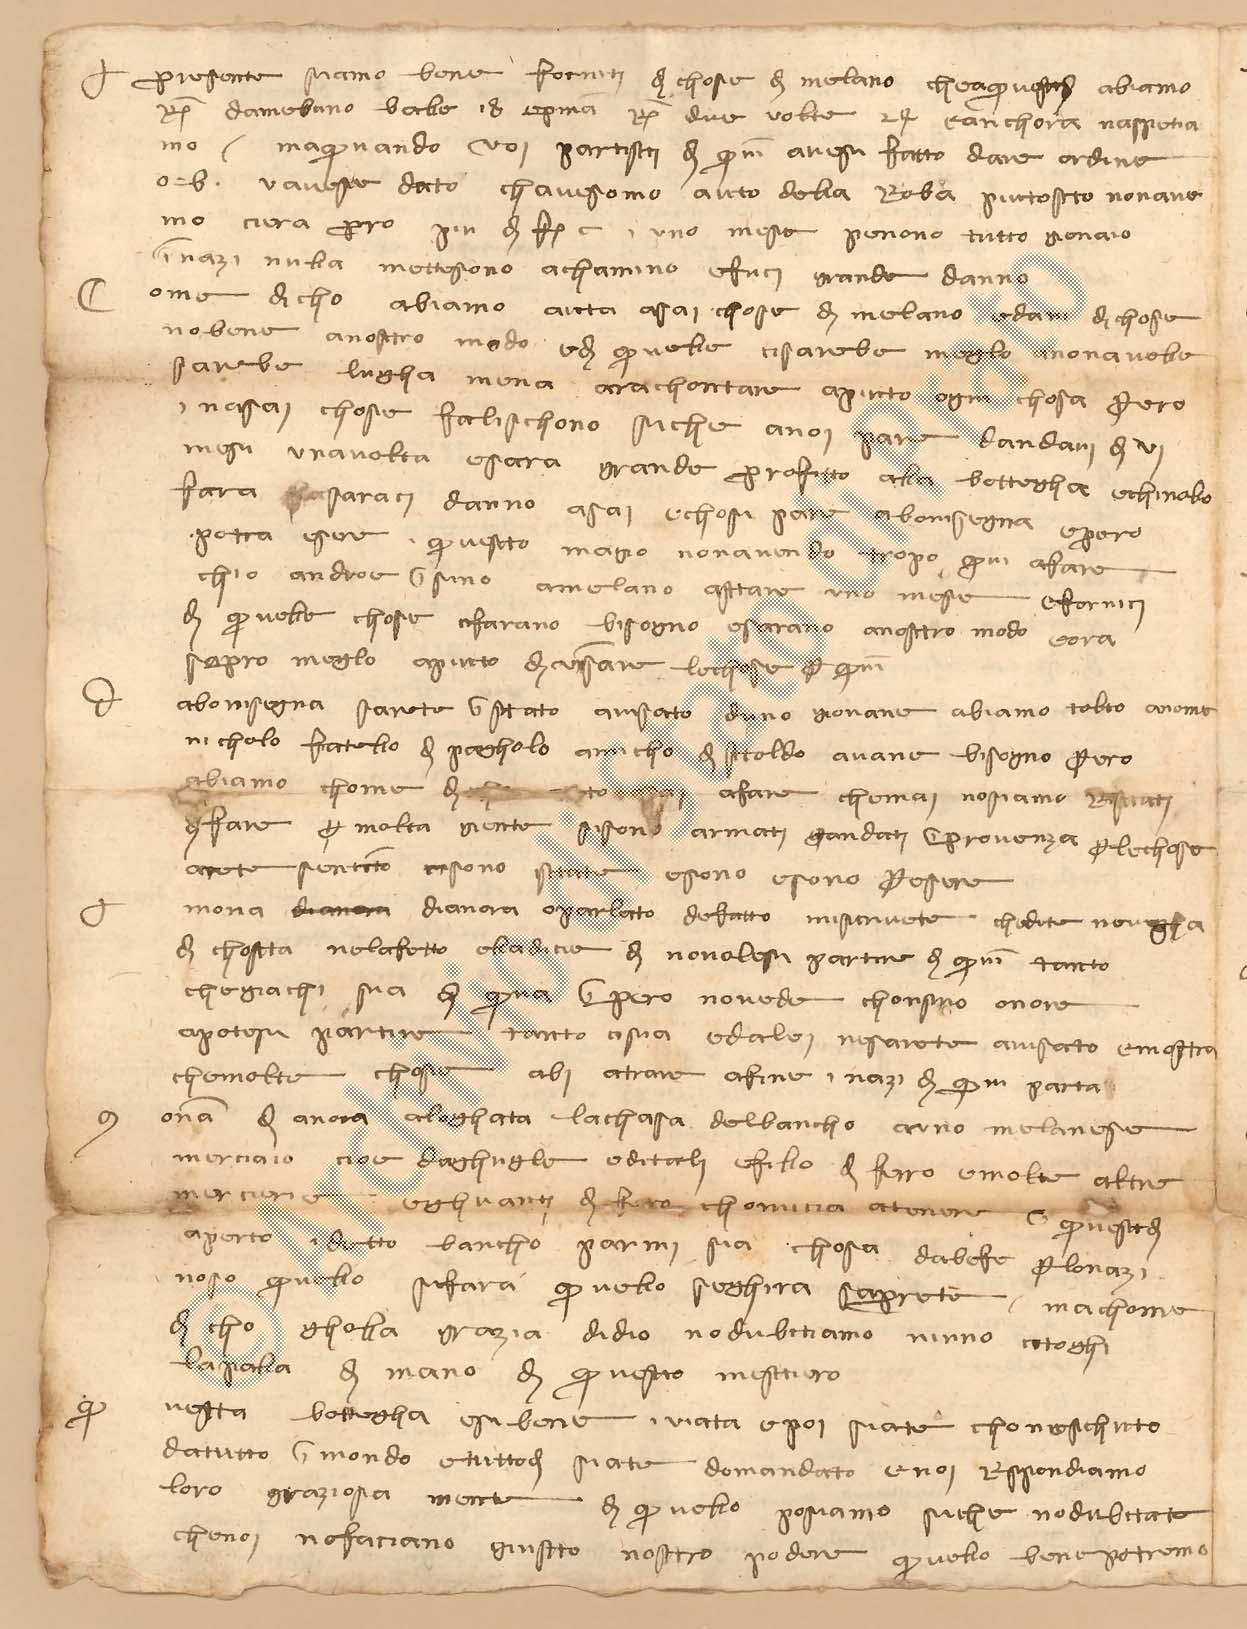 Al presente siamo bene forniti di chose di melano che a questi dì abiamo
Rm da melano balle 18 e prima Rm due volte 24 e anchora naspetia
mo / ma quando voi partisti di qui avesi fatto dare ordine
o b. v avese dato ch avesomo auto della roba piutosto non ave
mo ciera pro piu di fl c i uno mese penono tutto gienaio
inazi nulla mettesono a chamino e fuci grande danno
Come dicho abiamo auta asai chose di melano e dan di chose
no bene a nostro modo e di quelle ci sarebe meglo a non avelle
sarebe lugha mena a rachontare apunto ogni chosa pero
i nasai chose falischono siche a noi pare d andavi di vi
mesi una volta e sara grande profitto alla bottegha e chi nollo
fara asaraci danno asai e chosi pare a bonisegna e pero
potra esere i questo magio non avendo tropo qui a fare
ch io androe insino a melano a stare uno mese e fornici
di quelle chose ci farano bisogno e sarano a nostro modo e ora
sapro meglo apunto di avisare le chose per qui
Da bonisegna sarete istato avisato d uno giovane abiamo tolto a nome
nicholo fratello di pagholo amicho di stoldo avane bisogno pero
abiamo chome di to asai a fare che mai no siamo ristati
di fare per molta giente si sono armati e andati in provenza per le chose
arete sentito ci sono istate e sono e sono per esere
A mona dianora o parlato de fatto mi scrivete che dite n eugha
di chosta nel a fetto ella dicie di no volersi partire di qui tanto
che giachi sia di qua in pero no vede chon suo onore
a potesi partire tanto ci sia e da lei ne sarete avisato e mostra
che molte chose abi a trare a fine inazi di qui parta
Mona dianora a aloghata la chasa del bancho a uno melanese
merciaio cioe d aghugle e ditali e fillo di ferro e molte altre
mercierie e ghuanti di ferro chomicia a tenere in questi dì
aperto i detto bancho parmi sia chosa da beffe per lo nazi
no so quello si fara quello seghira saprete / ma chome
dicho cholla grazia di dio no dubitiamo niuno ci toghi
la palla di mano di questo mestiero
Questa bottegha e si bene iviata e poi siate chonoschiuto
da tutto i mondo e tutto dì siate domandato e noi rispondiamo
loro graziosa mente di quello posiamo siche no dubitate
che noi no faciano giusto nostro podere quello bene potremo
© Archivio di Stato di Prato